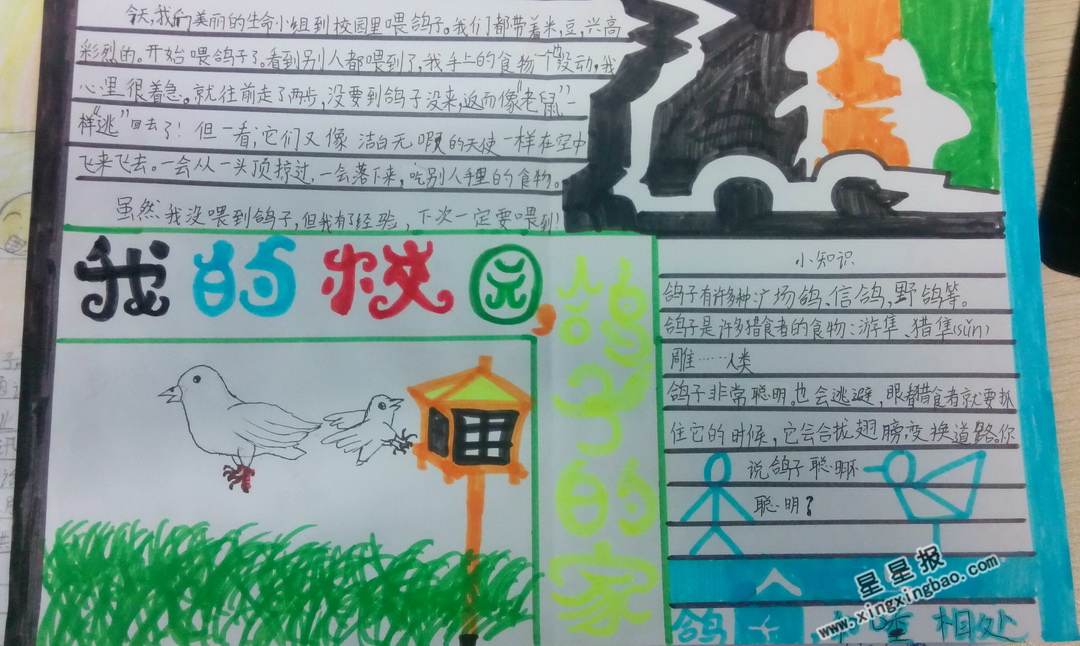 今天,我们美丽的生命小组到校园里喂鸽子。我们都带着米,豆,兴高
彩烈的。开始喂鸽子了。看到别人都喂到了,我手上的食物一动没动,我
心里很着急。就往前走了两步,没要到鸽子没来,返而像“老鼠”一
样“逃”回去了!但一看,它们又像洁白无暇的天使一样在空中
飞来飞去。一会从一头顶掠过,一会落下来,吃别人手里的食物。
虽然我没喂到鸽子,但我有了经验,下次一定要喂到!
我的校园,
鸽子的家
小知识
鸽子有许多种:广场鸽、信鸽,野鸽等。
鸽子是许多猎食者的食物:游隼、猎隼(sǔn)
雕……人类
鸽子非常聪明。也会逃避,眼看猎食者就要抓
住它的时候,它会合拢翅膀,变换道路。你
说鸽子聪明不
聪明?
人
鸽
相处
星星报
www.xingxingbao.com